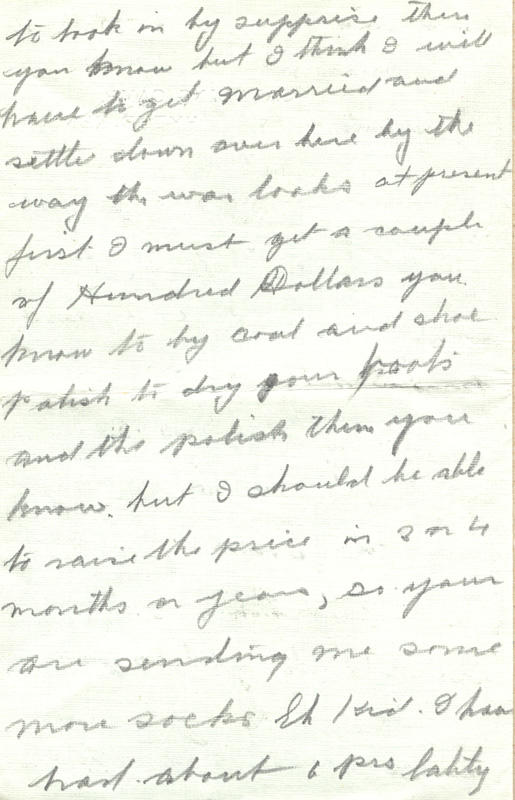 to look in by supprise then
you know but I think I will
have to get married and
settle down over here by the
way the war looks at present
first I must get a couple
of Hundred Dollars you
know to by coal and shoe
polish to dry your boots
and the polish them you
know. but I should be able
to raise the price in 3 or 4
months or years, so your
are sending me some
more socks Eh Kid. I have
had about 6 prs latity